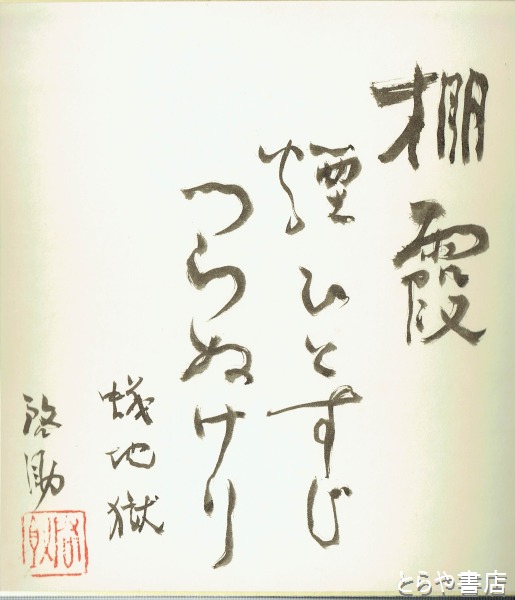 棚霞
煙ひとすじ
つらぬけり
蟻地獄
啓助
とらや書店